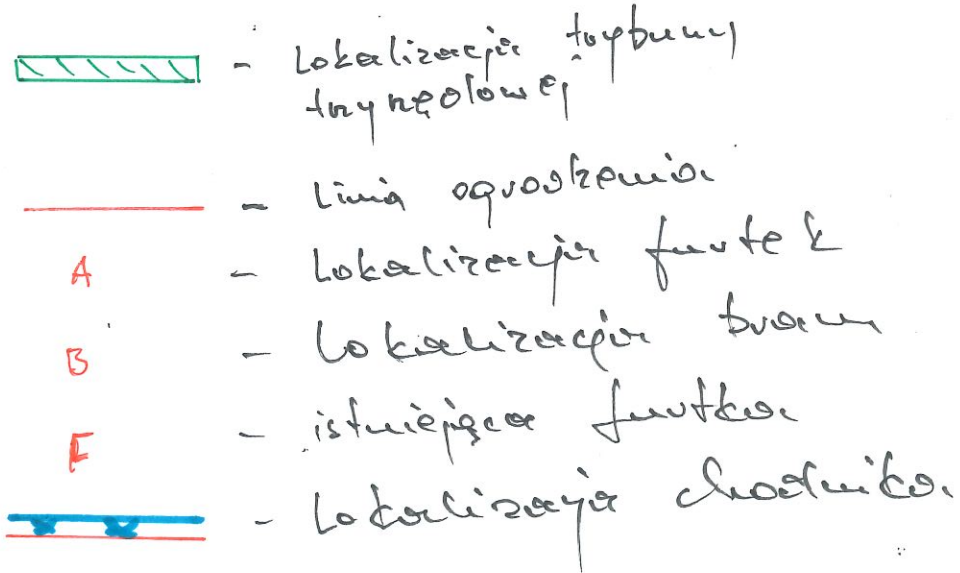 - Lokalizacja trybuny
trzyrzędowej
- Linia ogrodzenia
A - Lokalizacja furtek
B - Lokalizacja bram
F - istniejąca furtka
- Lokalizacja chodnika